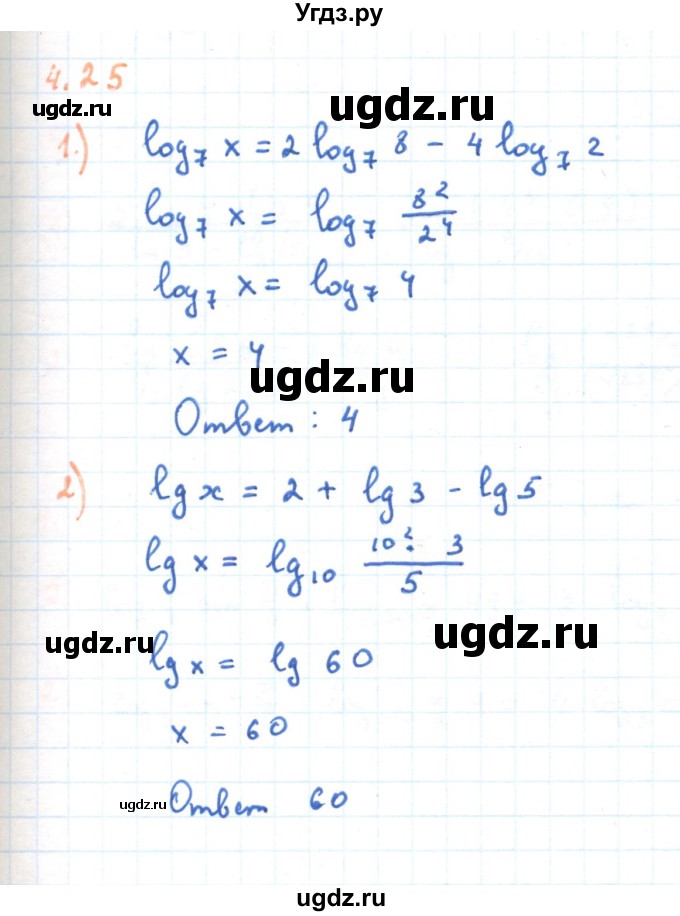 Угдз.ру
4.25
ugdz.ru
ugdz.ru
1.) log₇ x = 2 log₇ 8 - 4 log₇ 2
log₇ x = log₇ 8²/2⁴
log₇ x = log₇ 4
x = 4
ugdz.ru
Ответ : 4
2) lg x = 2 + lg 3 - lg 5
lg x = lg₁₀ 10² · 3/5
ugdz.ru
ugdz.ru
lg x = lg 60
x = 60
ugdz.ru
Ответ 60
ugdz.ru